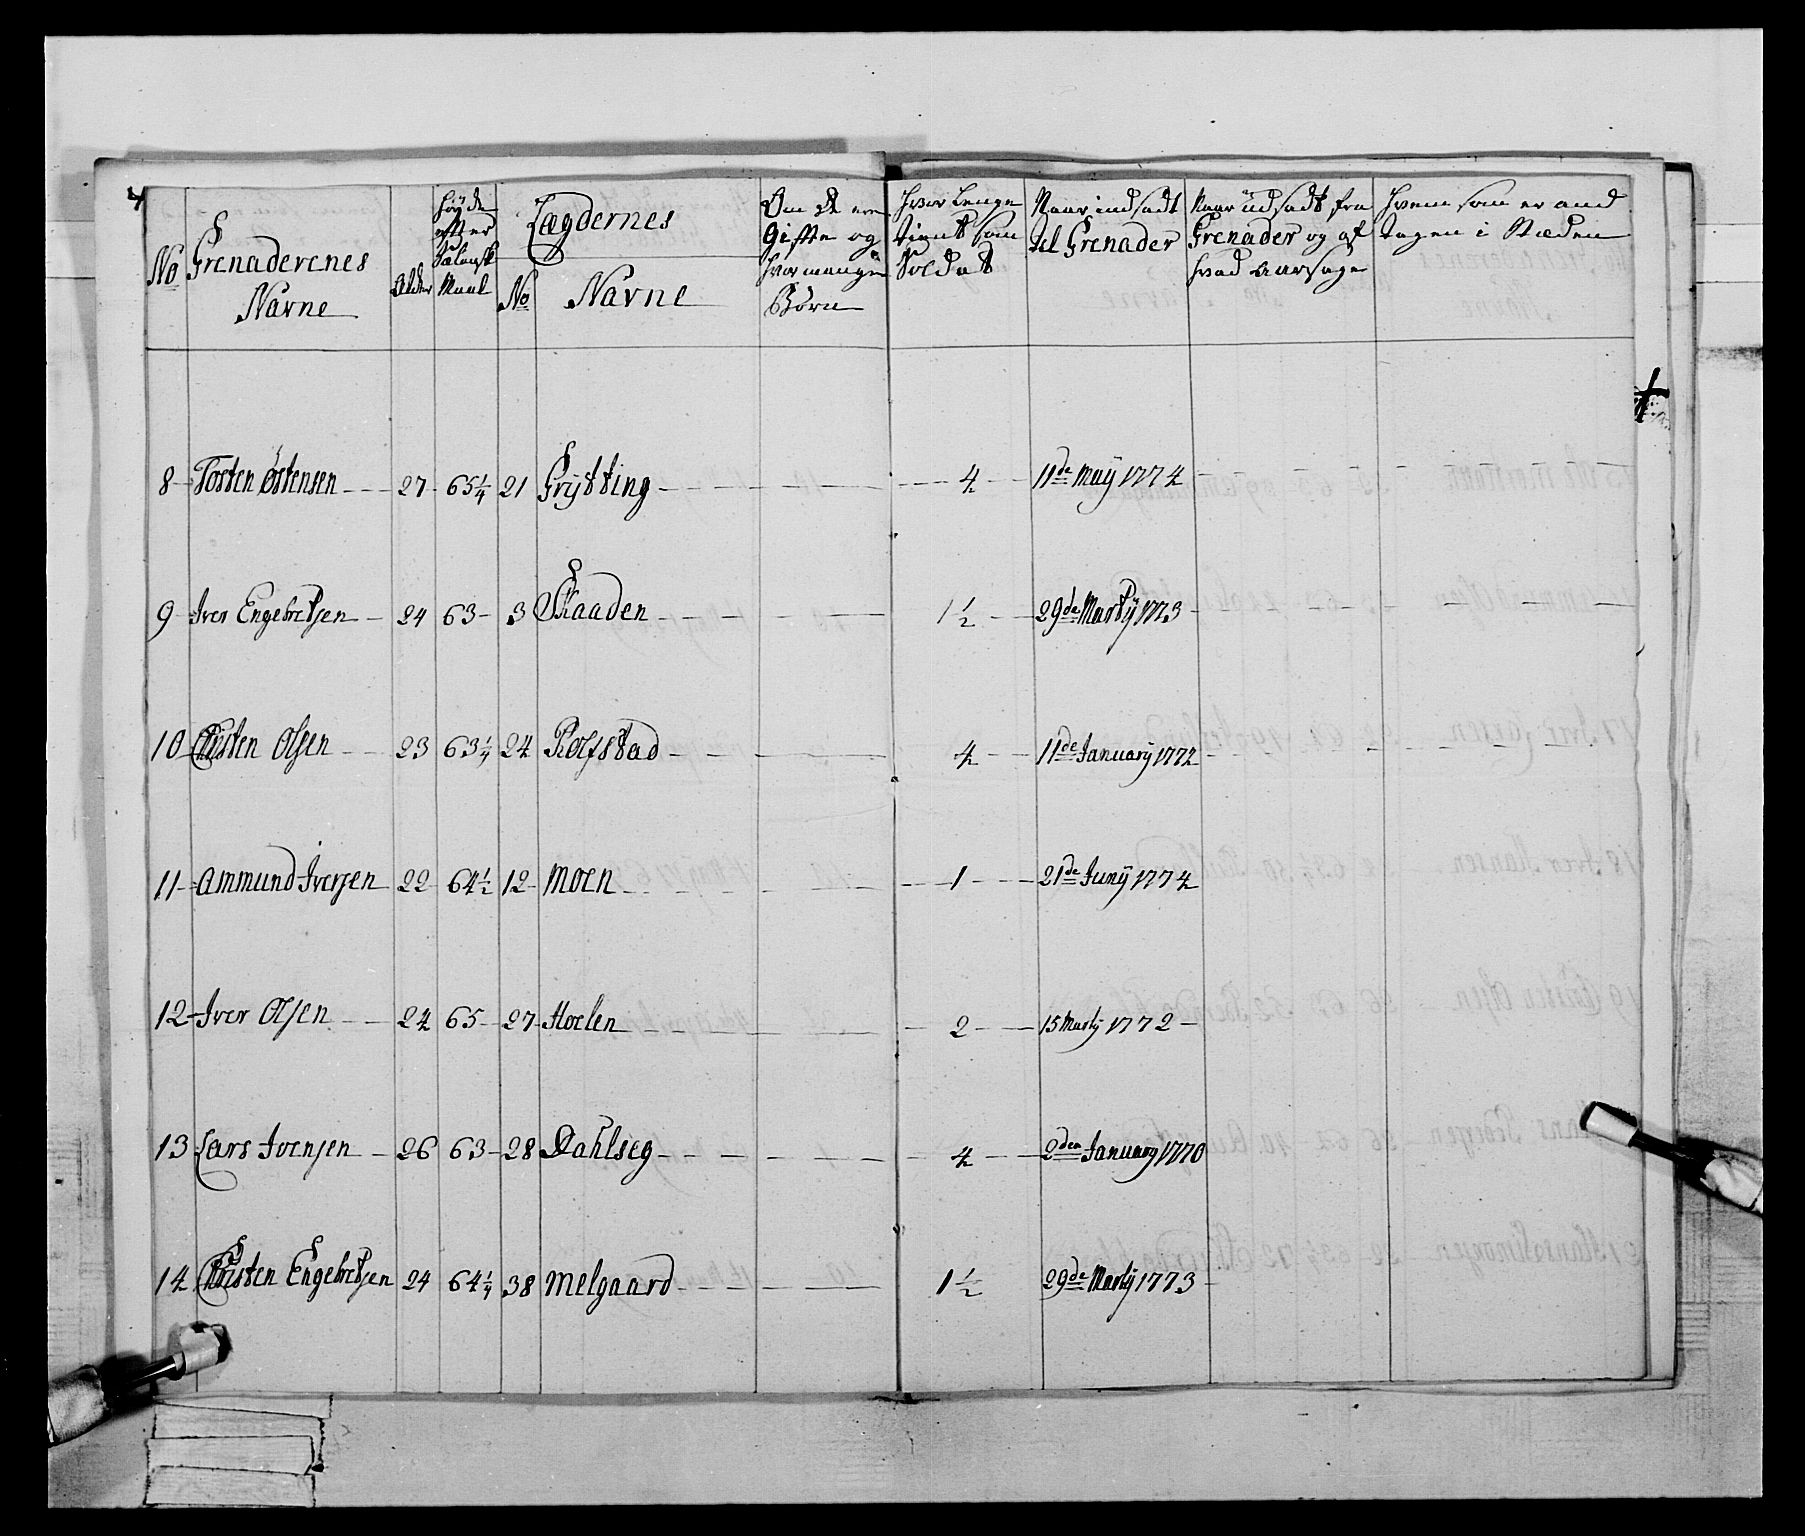 4
No
Grenaderenes
Navne
Alder
Høyde
efter
Sælansk
Maal
Lægdernes
No
Navne
Om de ere
Gifte og
hvor mange
Børn
Hvor Længe
tient som
Soldat
Naar indsadt
til Grenader
Naar udsadt fra
Grenader og af
hvad aarsage
Hvem som er and
tagen i Stæden
8 Tosten Østensen 27 65 1/4 21 Grytting 4 11de Maÿ 1774
9 Iver Engebretsen 24 63 3 Skaaden 1 1/2 29de Martÿ 1773
10 Christen Olsen 23 63 1/4 24 Rolfstad 4 11de Januarÿ 1772
11 Ammund Iversen 22 64 1/2 12 Moen 1 21de Junÿ 1774
12 Iver Olsen 24 65 27 Hoelen 2 15 Martÿ 1772
13 Lars Ivensen 26 63 28 Dahlseg 4 2den January 1770
14 Christen Engebretsen 24 64 1/4 38 Melgaard 1 1/2 29de Martÿ 1773